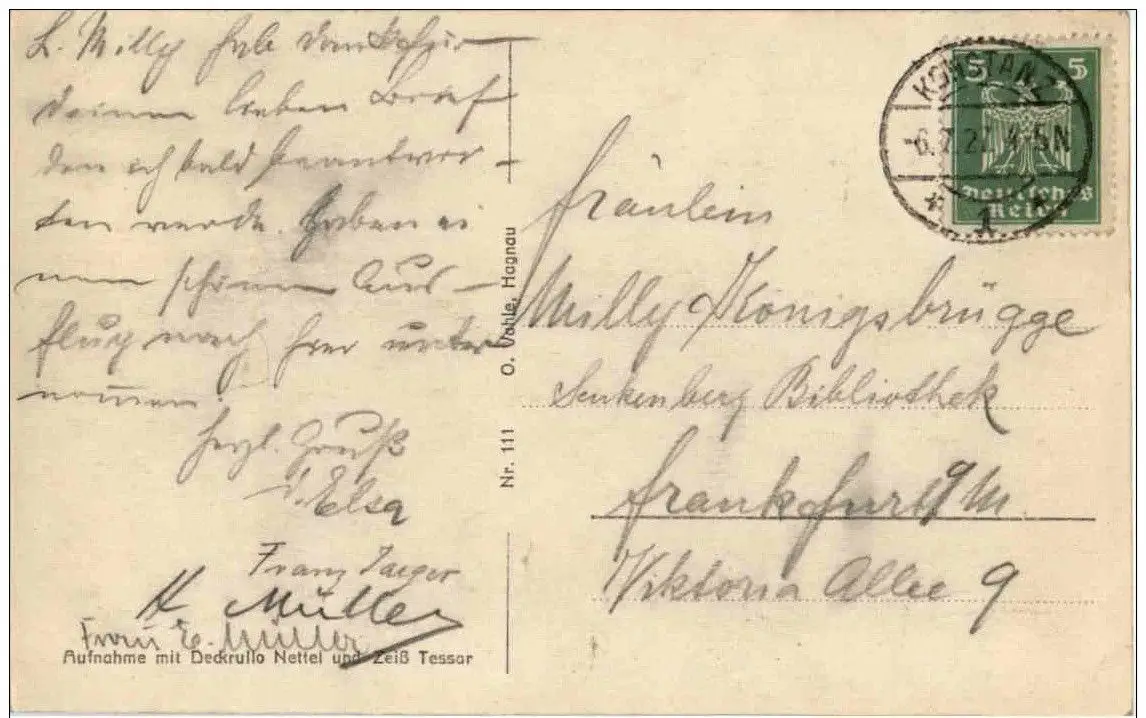 L. Milly hab Dank für
deinen lieben Brief
den ich bald beantwor-
ten werde. Haben ei
nen schönen Aus-
flug nach hier unter
nommen.
Herzl. Gruß
Elsa
Franz Jaeger
H. Müller
Frau E. Müller
Aufnahme mit Deckrullo Nettel und Zeiß Tessar
Nr. 111 O. Vahle, Hagnau
KONSTANZ
-6. 27. 4-5N
* 1 *
5 5
Deutsches
Reich
Fräulein
Milly Königsbrügge
Senkenberg Bibliothek
Frankfurt a/M.
Viktoria Allee 9